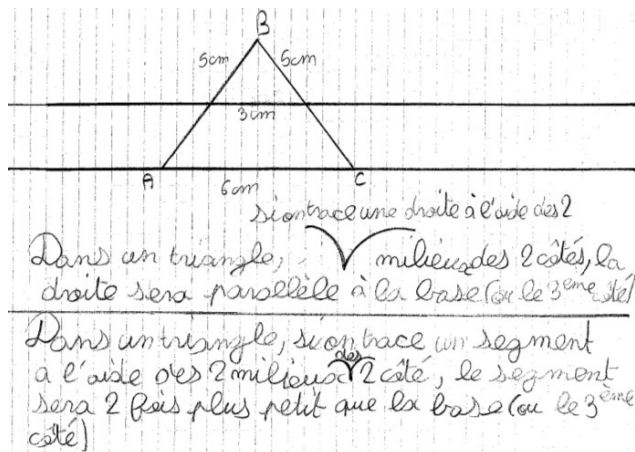 B
5cm 5cm
3cm
A C
6cm
si on trace une droite à l'aide des 2
Dans un triangle, milieux des 2 côtés, la
droite sera parallèle à la base (ou le 3ème côté)
Dans un triangle, si on trace un segment
des
à l'aide des 2 milieux 2 côté, le segment
sera 2 fois plus petit que la base (ou le 3ème
côté)